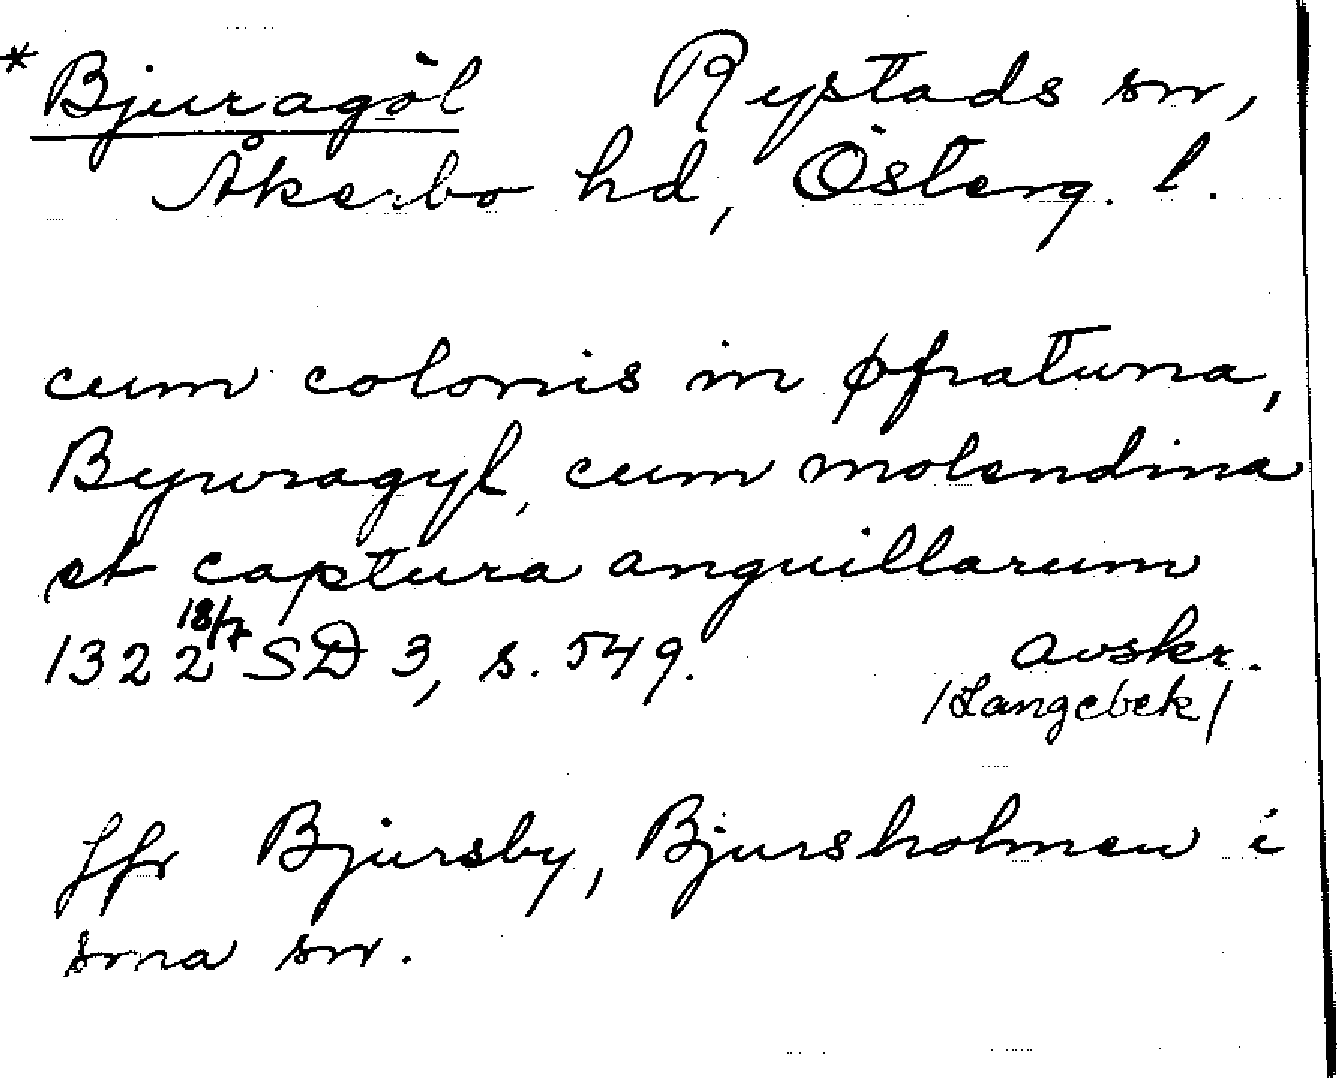 * Bjuragöl Rystads sn,
Åkerbo hd, Österg. l.
cum colonis in ϕfratuna,
Bywragyl, cum molendina
et captura anguillarum
1322 18/7 SD 3, s. 549. avskr.
/Langebek/
Jfr Bjursby, Bjursholmen i
sma sn.